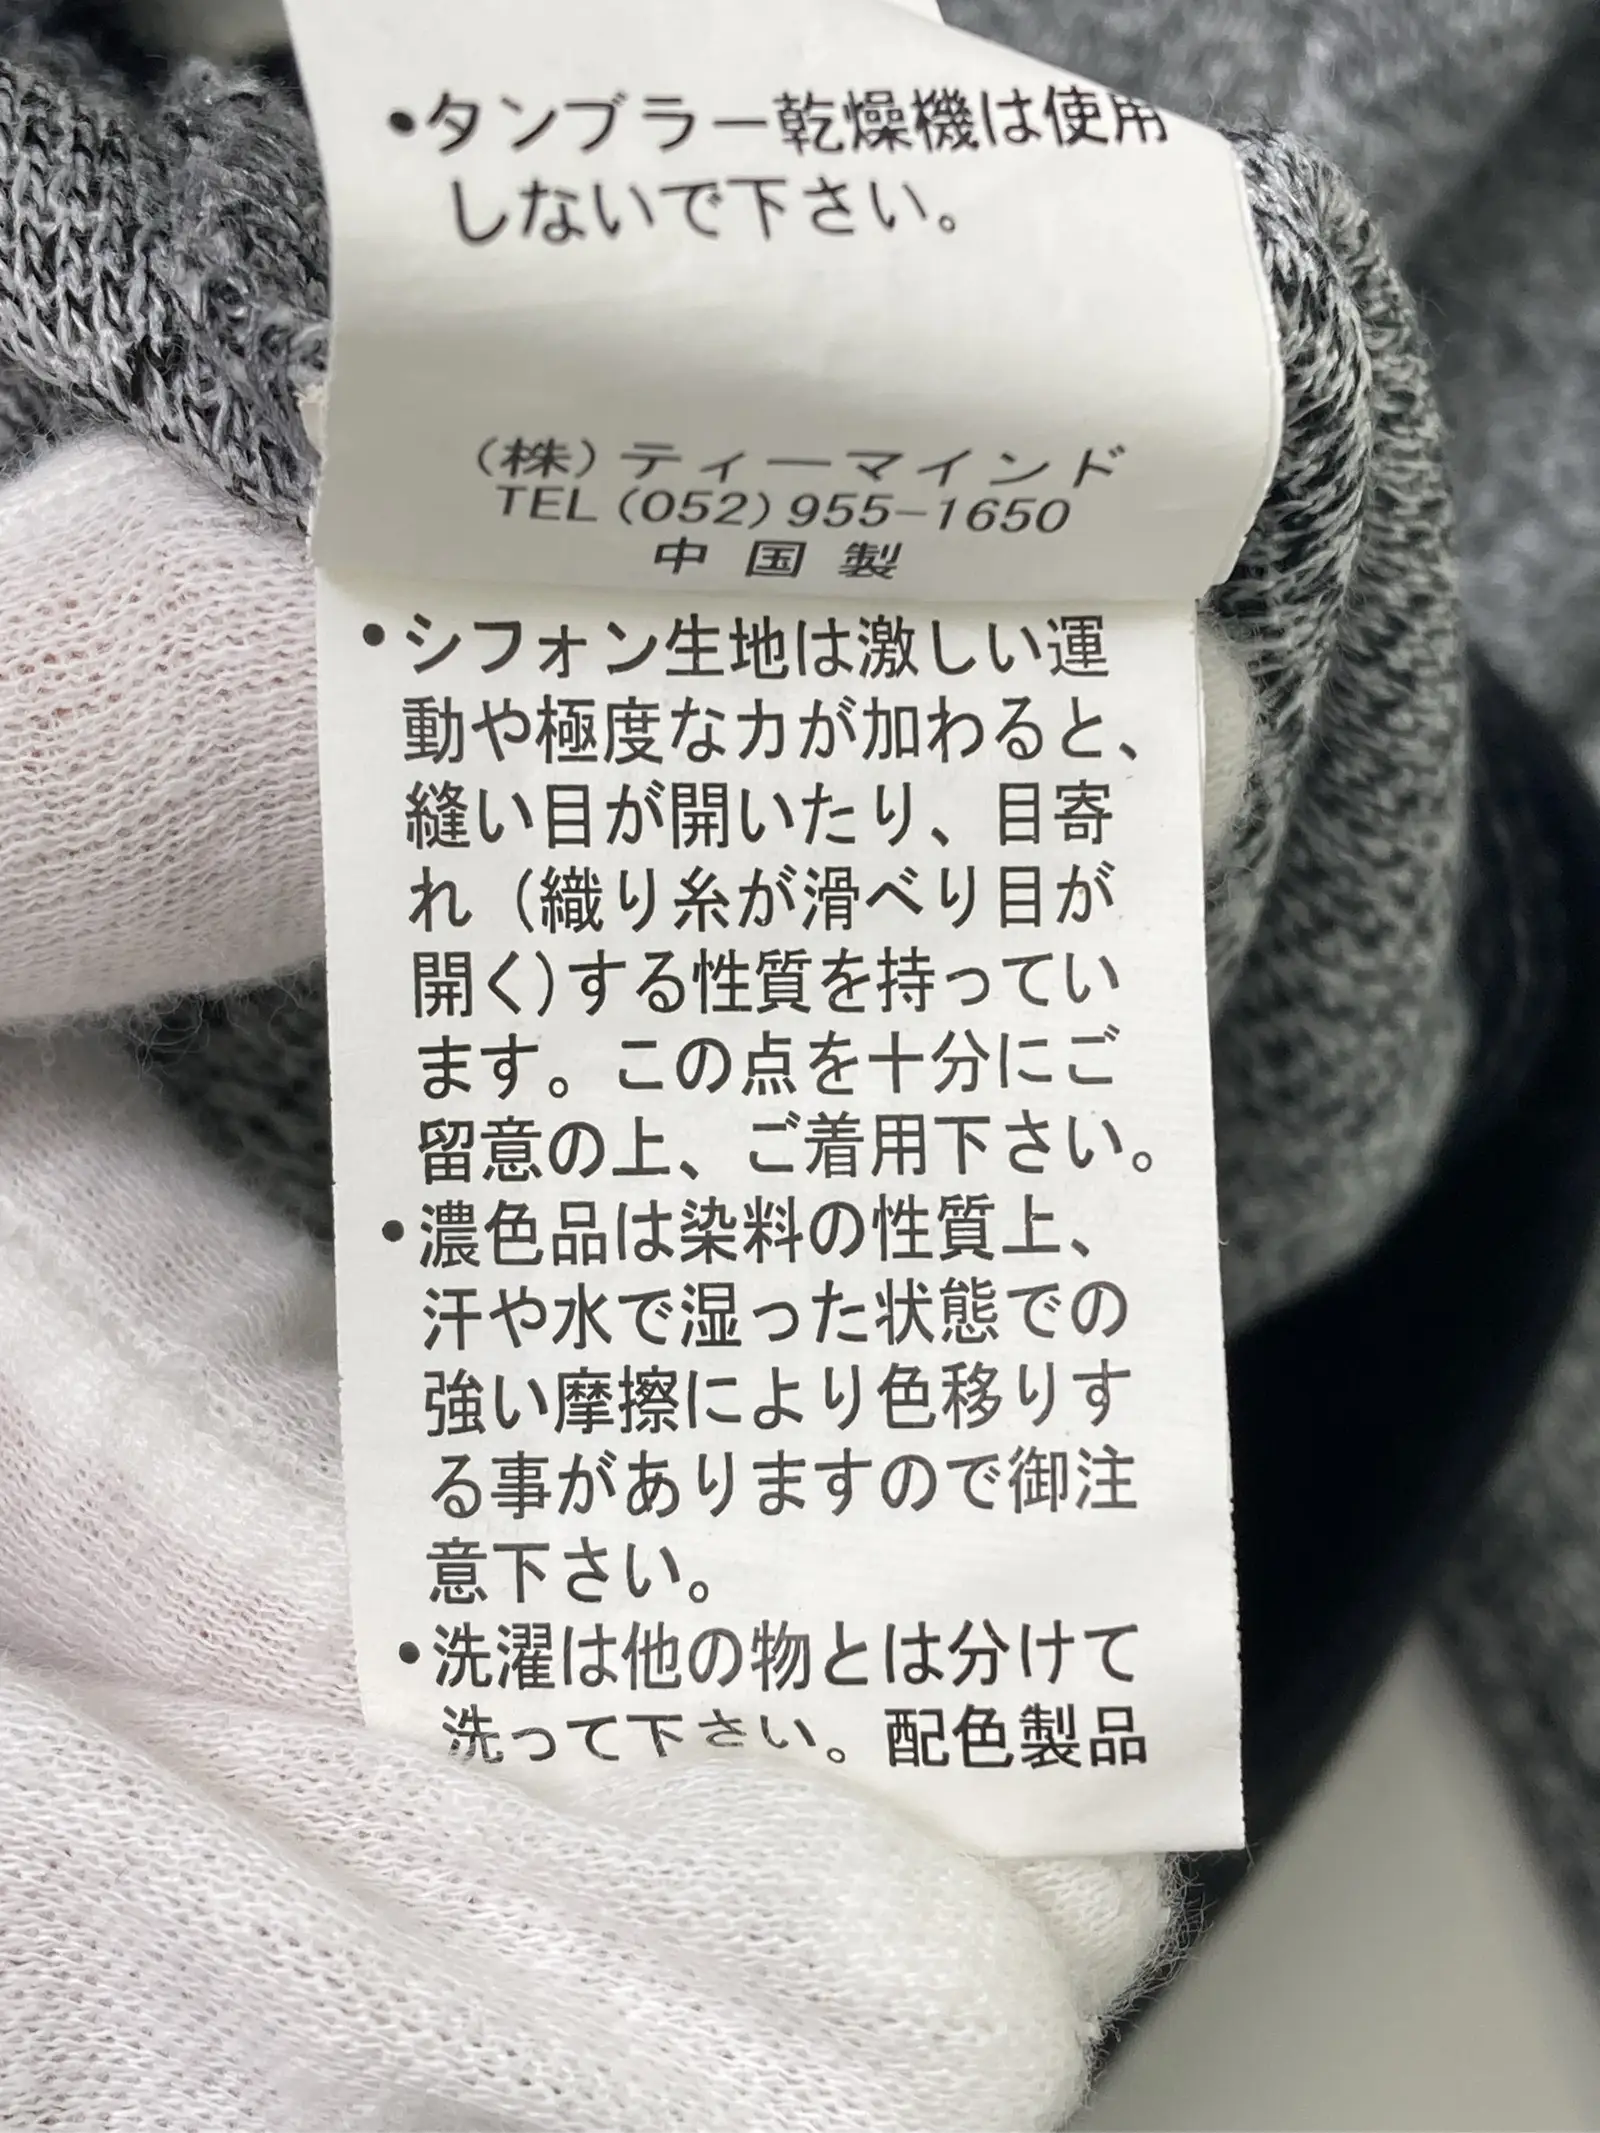 •タンブラー乾燥機は使用
しないで下さい。
(株)ティーマインド
TEL(052)955-1650
中国製
•シフォン生地は激しい運
動や極度な力が加わると、
縫い目が開いたり、目寄
れ(織り糸が滑べり目が
開く)する性質を持ってい
ます。この点を十分にご
留意の上、ご着用下さい。
•濃色品は染料の性質上、
汗や水で湿った状態での
強い摩擦により色移りす
る事がありますので御注
意下さい。
•洗濯は他の物とは分けて
洗って下さい。配色製品